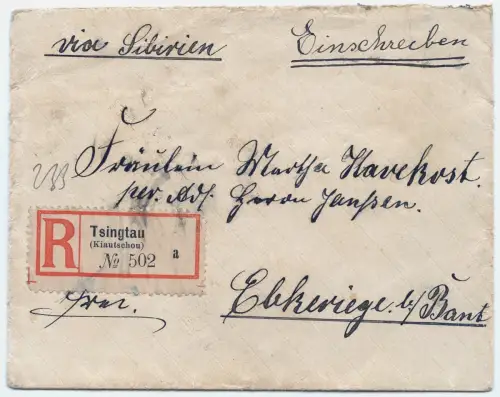 via Sibirien
Einschreiben
Fräulein Martha Havekost.
per. Adr. Herrn Janßen.
R
Tsingtau
(Kiautschou)
№ 502 a
frei.
Ebkeriege. b/ Bant